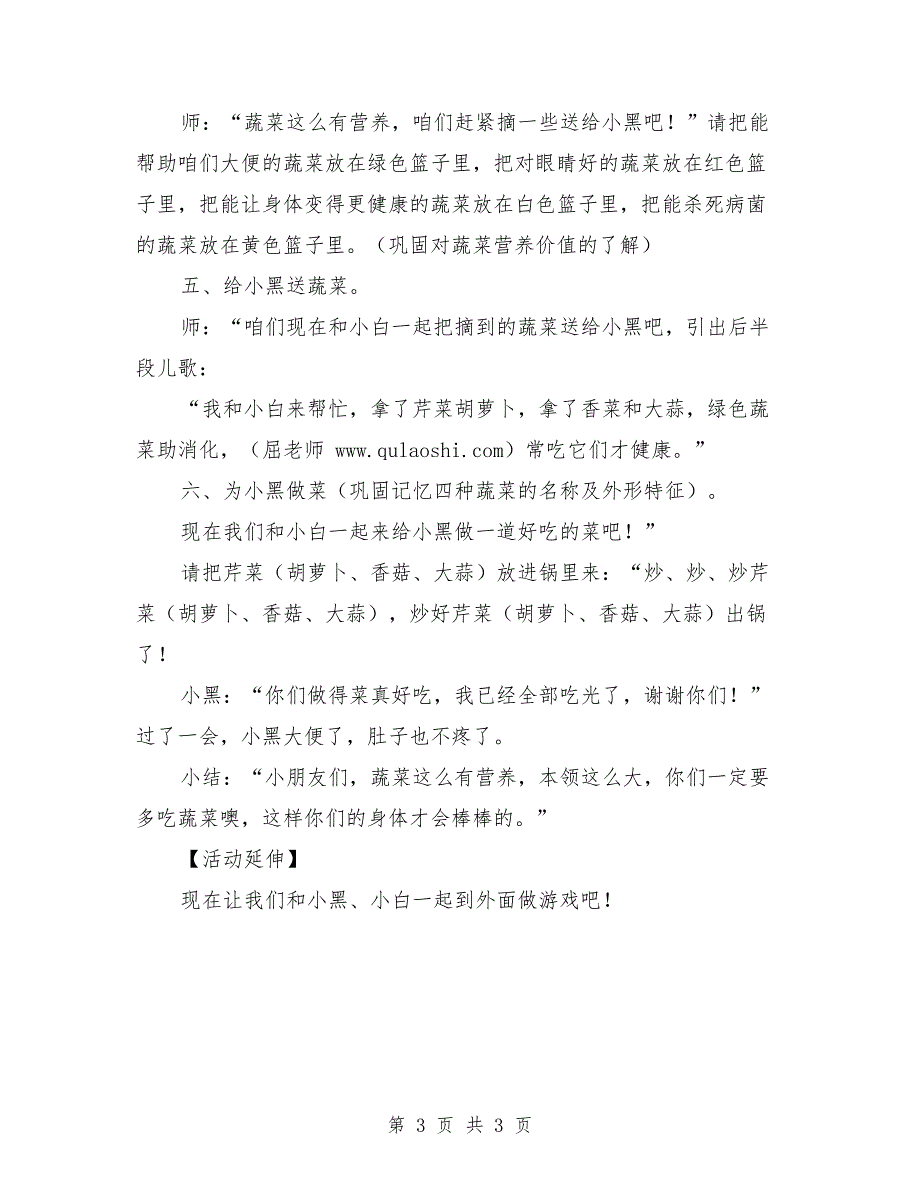 师：“蔬菜这么有营养，咱们赶紧摘一些送给小黑吧！”请把能
帮助咱们大便的蔬菜放在绿色篮子里，把对眼睛好的蔬菜放在红色篮
子里，把能让身体变得更健康的蔬菜放在白色篮子里，把能杀死病菌
的蔬菜放在黄色篮子里。（巩固对蔬菜营养价值的了解）
五、给小黑送蔬菜。
师：“咱们现在和小白一起把摘到的蔬菜送给小黑吧，引出后半
段儿歌：
“我和小白来帮忙，拿了芹菜胡萝卜，拿了香菜和大蒜，绿色蔬
菜助消化，（屈老师 www.qulaoshi.com）常吃它们才健康。”
六、为小黑做菜（巩固记忆四种蔬菜的名称及外形特征）。
现在我们和小白一起来给小黑做一道好吃的菜吧！”
请把芹菜（胡萝卜、香菇、大蒜）放进锅里来：“炒、炒、炒芹
菜（胡萝卜、香菇、大蒜），炒好芹菜（胡萝卜、香菇、大蒜）出锅
了！
小黑：“你们做得菜真好吃，我已经全部吃光了，谢谢你们！”
过了一会，小黑大便了，肚子也不疼了。
小结：“小朋友们，蔬菜这么有营养，本领这么大，你们一定要
多吃蔬菜噢，这样你们的身体才会棒棒的。”
【活动延伸】
现在让我们和小黑、小白一起到外面做游戏吧！
第 3 页 共 3 页